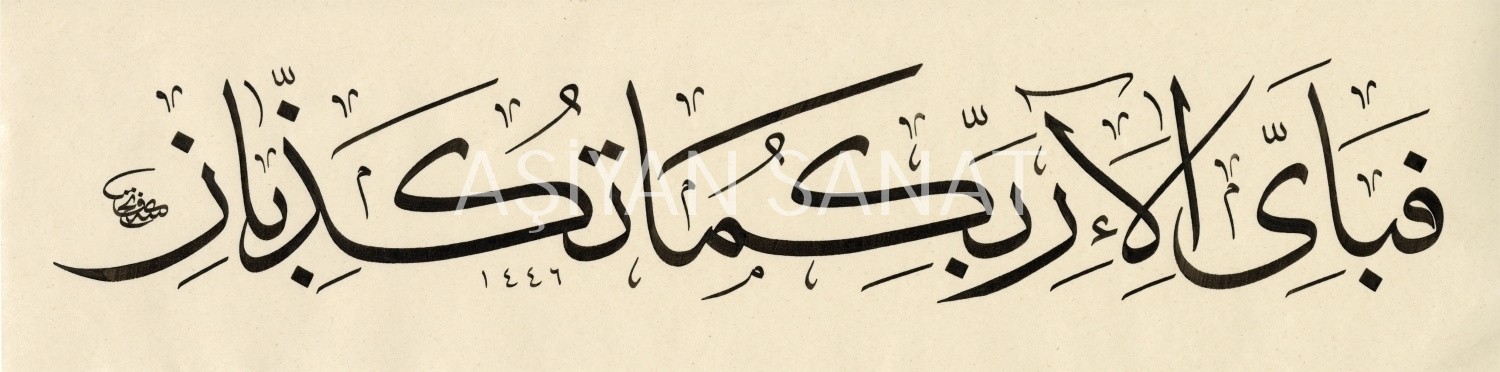 فَبِأَىِّ اٰلَآءِ رَبِّكُمَا تُكَذِّبَانِ
١٤٤٦
AŞİYAN SANAT